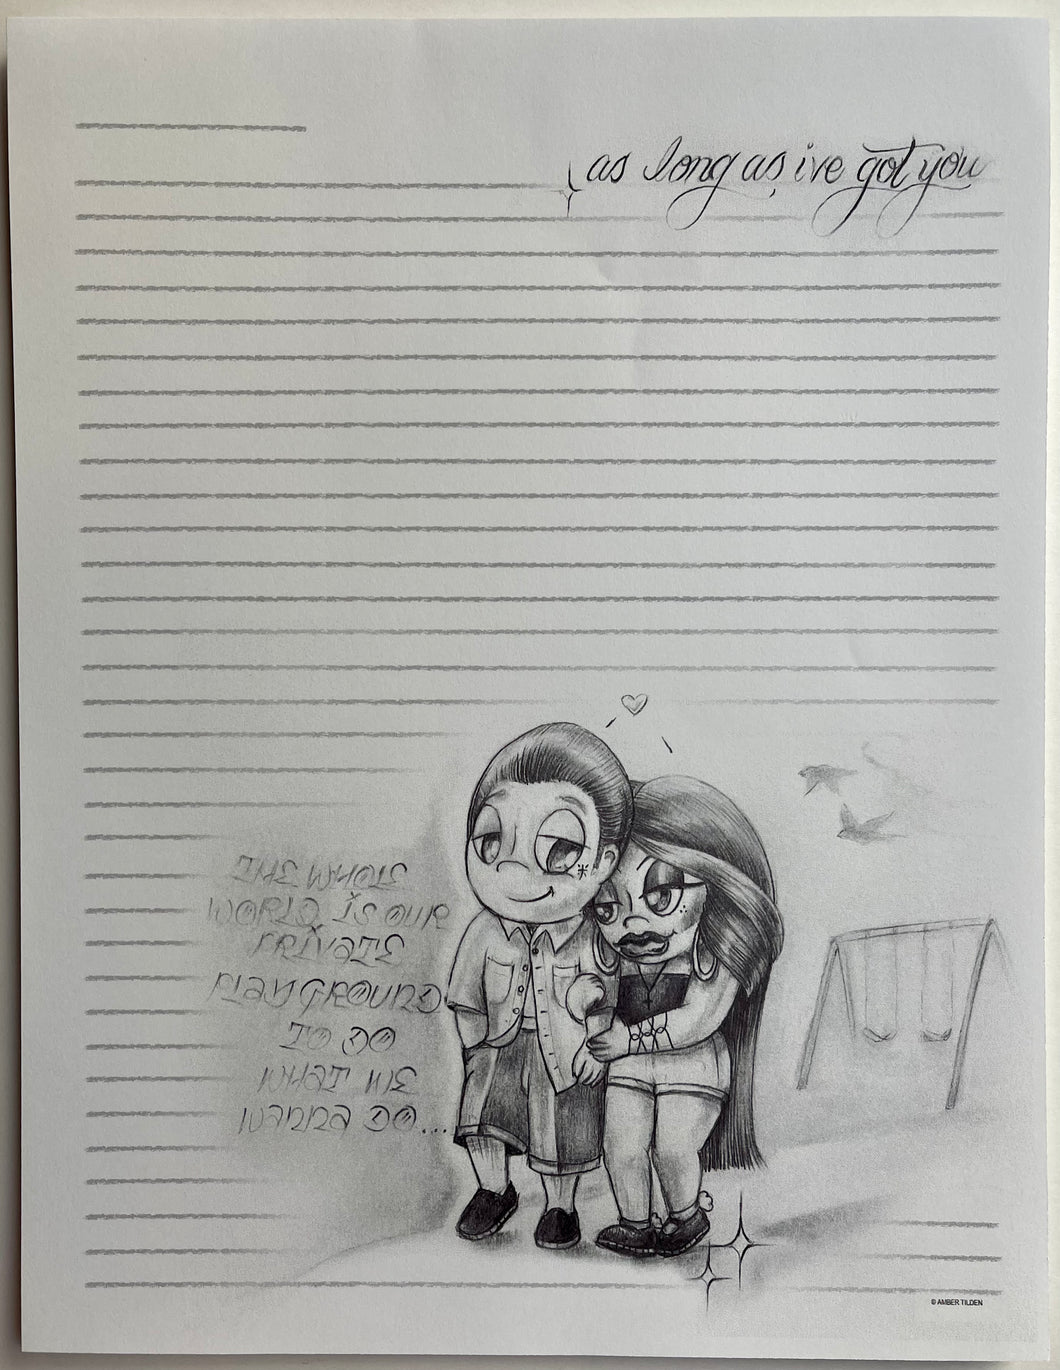 as long as ive got you
THE WHOLE
WORLD IS OUR
PRIVATE
PLAYGROUND
TO DO
WHAT WE
WANNA DO...
© AMBER TILDEN